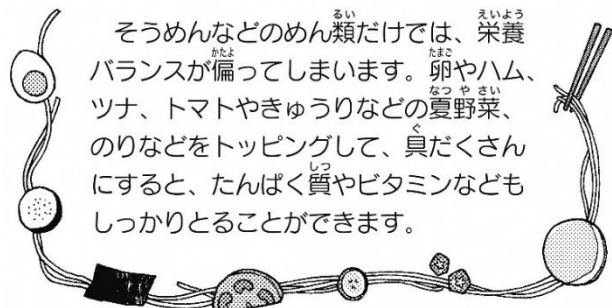 そうめんなどのめん類だけでは、栄養
バランスが偏ってしまいます。卵やハム、
ツナ、トマトやきゅうりなどの夏野菜、
のりなどをトッピングして、具だくさん
にすると、たんぱく質やビタミンなども
しっかりとることができます。